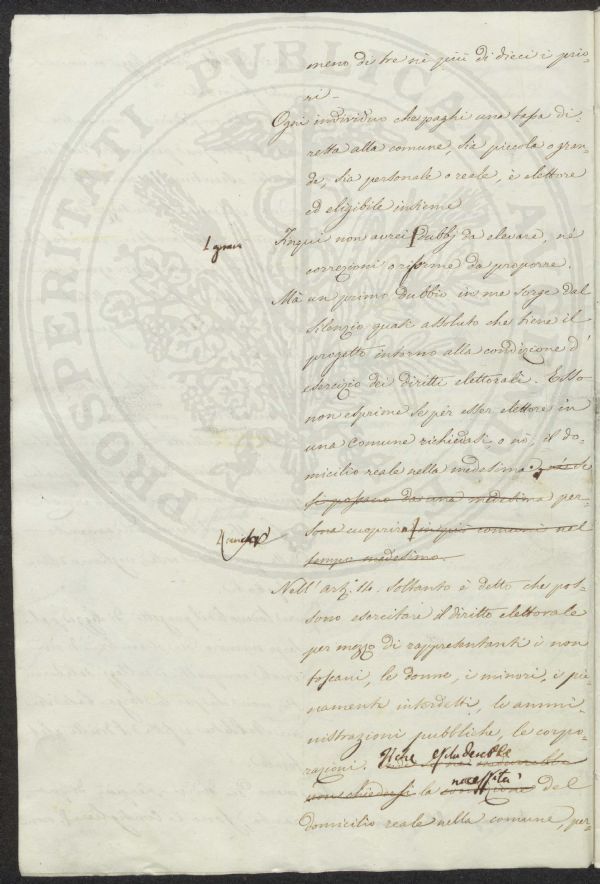 meno di tre nè più di dieci i prio-
ri -
Ogni individuo che paghi una tassa di-
retta alla comune, sia piccola o gran-
de, sia personale o reale, è elettore
ed eligibile insieme
Finqui non avrei dubbj da elevare, nè
correzioni o riforme da proporre.
Mà un primo dubbio in me sorge dal
silenzio quasi assoluto che tiene il
progetto intorno alla condizione d'
esercizio dei diritti elettorali. Esso
non esprime se per esser elettore in
una comune richiedasi, o nò, il do-
micilio reale nella medesima
si possano da una medesima per-
sona cuoprire in più comuni nel
tempo medesimo.
Nell'art. 14. soltanto è detto che pos-
sono esercitare il diritto elettorale
per mezzo di rappresentanti i non
toscani, le donne, i minori, i pie-
namente interdetti, le ammi-
nistrazioni pubbliche, le corpo-
razioni. Il che escluderebbe
la necessità del
domicilio reale nella comune, per-
PROSPERITATI PVBLICAE